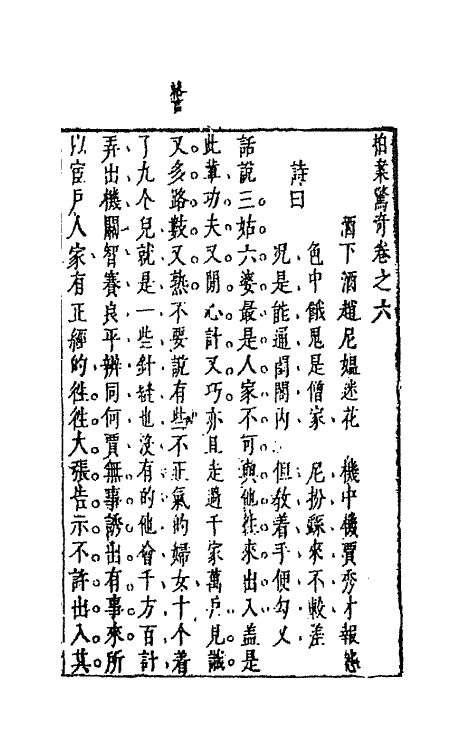 拍案驚奇卷之六
酒下酒趙尼媪迷花　機中機賈秀才報怨
詩曰
色中餓鬼是僧家　尼扮繇來不較差
況是能通閨閣内　但教着手便勾叉
話說三姑六婆最是人家不可與他徃來出入蓋是
此輩功夫又閒心計又巧亦且走過千家萬戶見識
又多路數又熟不要說有些不正氣的婦女十个着
了九个兒就是一些針縫也沒有的他會千方百計
弄出機關智賽良平辨同何賈無事誘出有事來所
以宦戶人家有正經的徃徃大張告示不許出入其